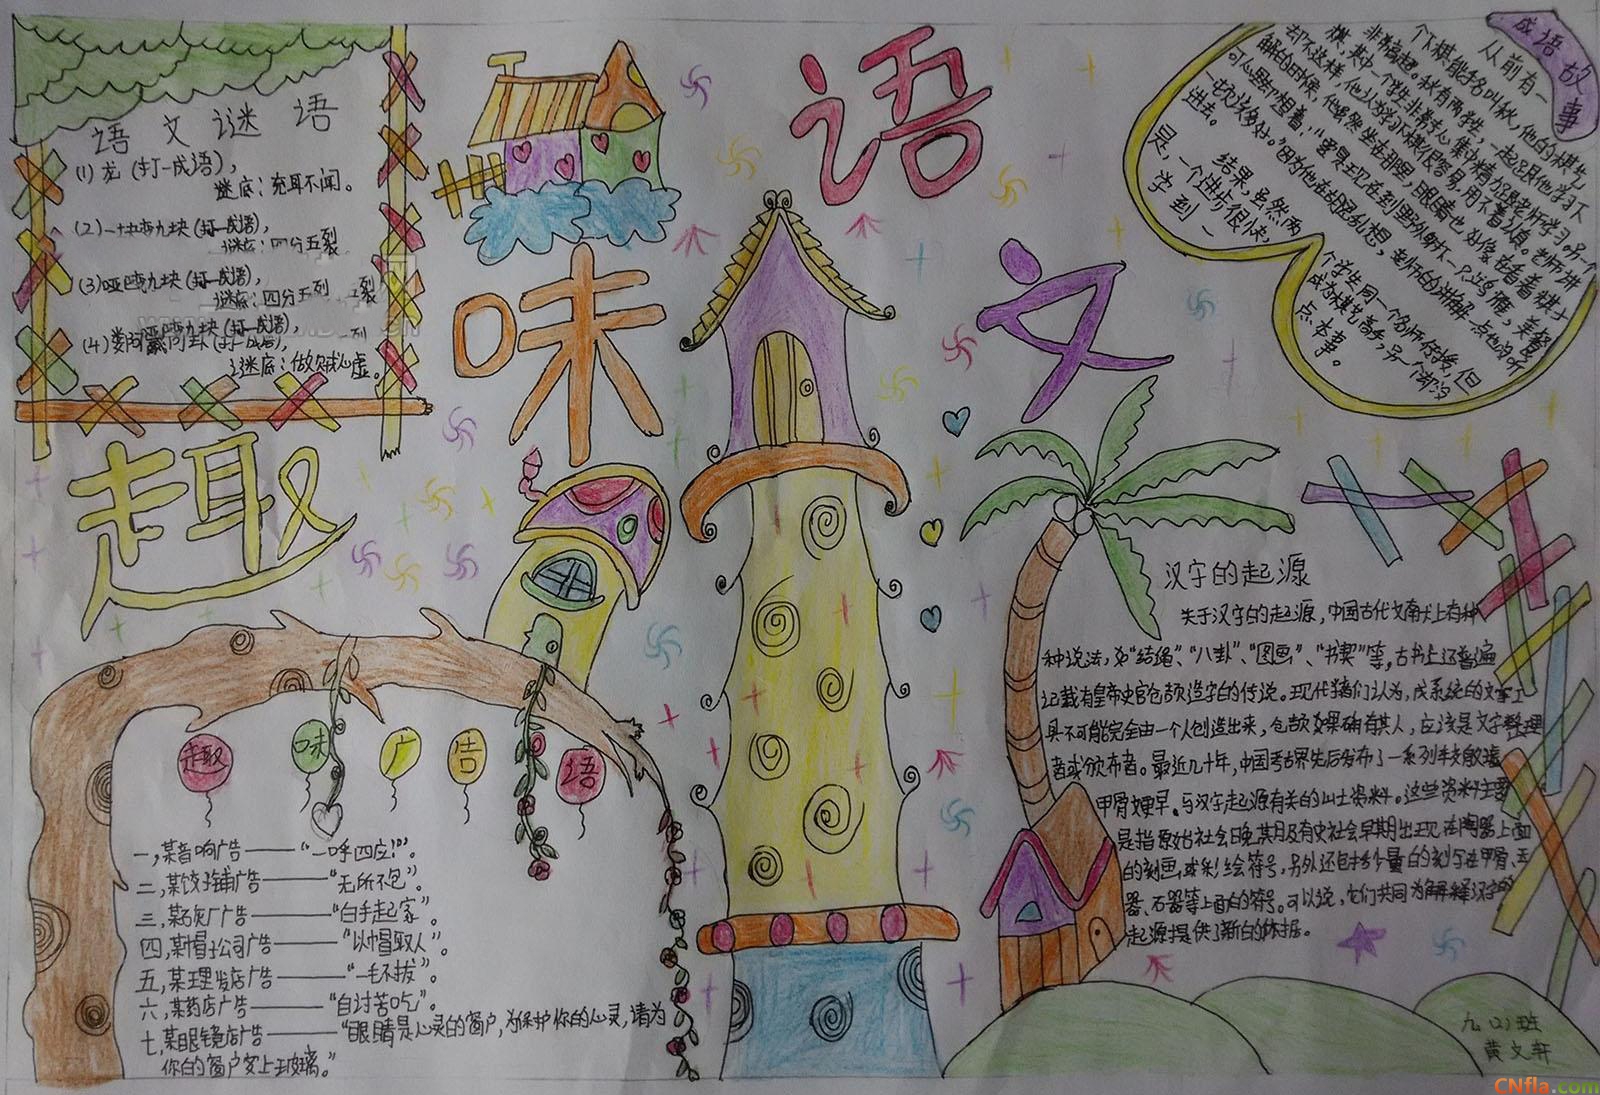 趣味语文
语文谜语
(1)龙(打一成语),
谜底:充耳不闻。
(2)一块变九块(打一成语),
谜底:四分五裂
(3)哑巴变九块(打一成语),
谜底:四分五列 裂
(4)娄阿鼠问卦(打一成语),
谜底:做贼心虚。
成语故事
从前有一
个下棋能手名叫秋,他的棋艺
非常高超。秋有两个学生,一起跟他学习下
棋,其中一个学生非常专心,集中精力跟老师学习。另一个
却不这样,他认为学习下棋很容易,用不着认真。老师讲
解的时候,他虽然坐在那里,眼睛也好像在看着棋子,
可心里却想着:“要是现在到野外射下一只鸿雁,美餐
一顿该多好。”因为他在胡思乱想,老师的讲解一点也没听
进去。
结果,虽然两
个学生同一个名师传授,但
是,一个进步很快,
成为棋艺高手,另一个却没
学到一
点本事。
趣味广告语
一,某音响广告——“一呼四应!”。
二,某饺子铺广告——“无所不包”。
三,某石灰厂广告——“白手起家”。
四,某帽子公司广告——“以帽取人”。
五,某理发店广告——“一毛不拔”。
六,某药店广告——“自讨苦吃”。
七,某眼镜店广告——“眼睛是心灵的窗户,为保护你的心灵,请为
你的窗户安上玻璃。”
汉字的起源
关于汉字的起源,中国古代文献上有种
种说法,如“结绳”、“八卦”、“图画”、“书契”等,古书上还普遍
记载有皇帝史官仓颉造字的传说。现代学者们认为,成系统的文字工
具不可能完全由一个人创造出来,仓颉如果确有其人,应该是文字整理
者或颁布者。最近几十年,中国考古界先后发布了一系列较殷墟
甲骨文更早、与汉字起源有关的出土资料。这些资料主要
是指原始社会晚期及有史社会早期出现在陶器上面
的刻画或彩绘符号,另外还包括少量的刻写在甲骨、玉
器、石器等上面的符号。可以说,它们共同为解释汉字的
起源提供了新的依据。
九(2)班
黄文轩
CNfla.com